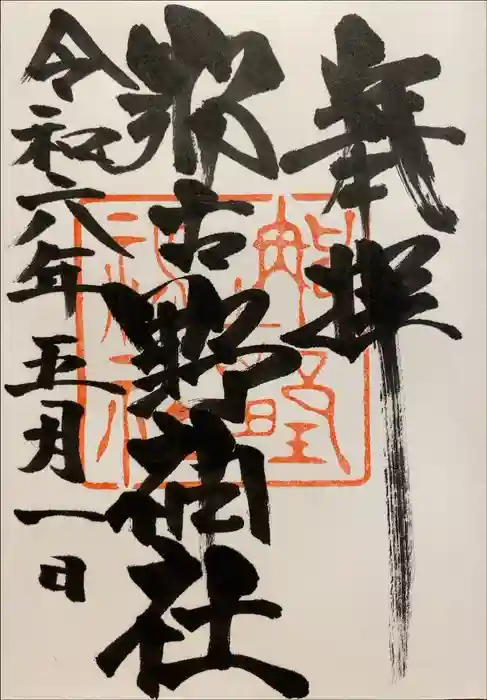 奉拝
古野神社
令和六年五月一日